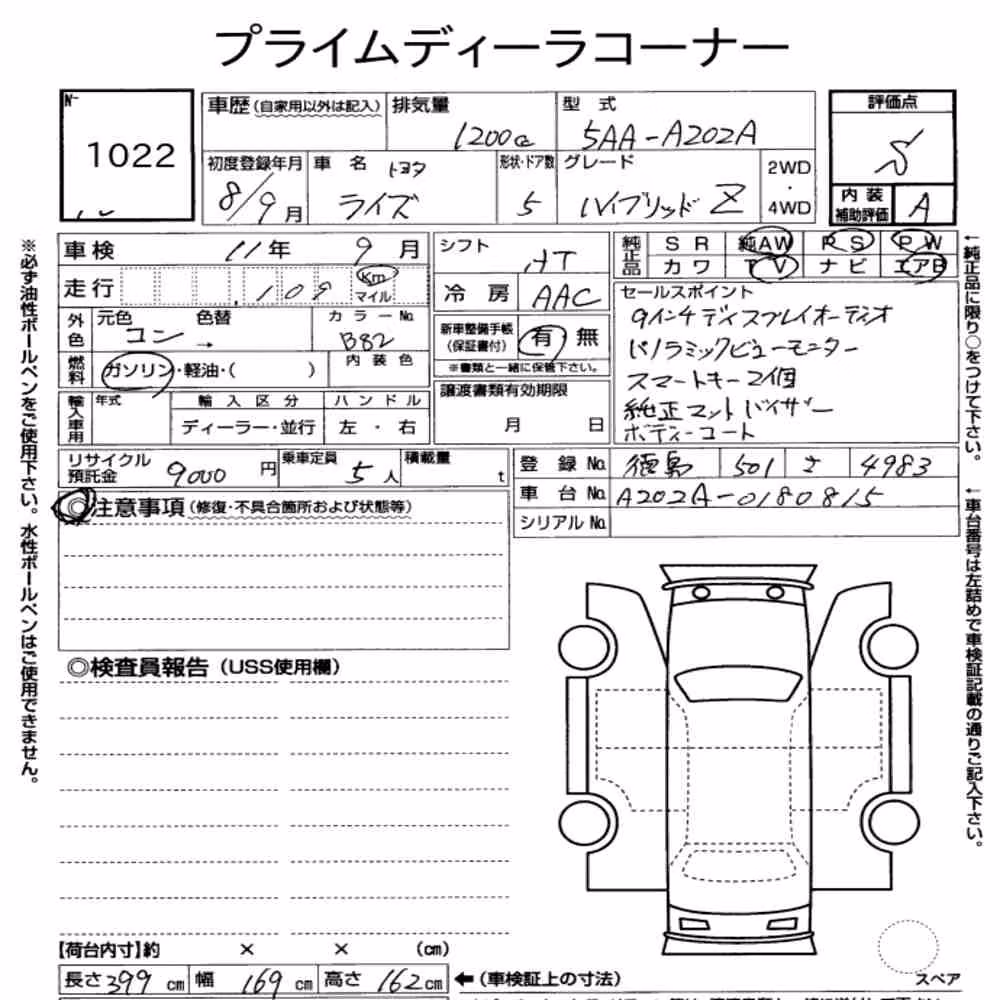 プライムディーラコーナー
№
1022
車歴(自家用以外は記入) 排気量 1200cc 型式 5AA-A202A
評価点 S
初度登録年月 8/9月 車名 トヨタ ライズ 形状・ドア数 5 グレード ハイブリッドZ 2WD・4WD
内装補助評価 A
車検 11年 9月
シフト AT
純正品 SR 純AW PS PW
カワ TV ナビ エアB
走行 109 Km マイル
冷房 AAC
セールスポイント
9インチディスプレイオーディオ
パノラミックビューモニター
スマートキー2個
純正マットバイザー
ボディーコート
外色 元色 コン → 色替 カラー№ B82
新車整備手帳(保証書付) 有 無
※書類と一緒に保管下さい。
燃料 ガソリン・軽油・( ) 内装色
譲渡書類有効期限 月 日
輸入車用 年式 輸入区分 ハンドル
ディーラー・並行 左・右
リサイクル預託金 9000円 乗車定員 5人 積載量 t
登録№ 徳島 501 さ 4983
車台№ A202A-0180815
シリアル№
◎注意事項(修復・不具合箇所および状態等)
◎検査員報告(USS使用欄)
【荷台内寸】約 × × (cm)
長さ 399cm 幅 169cm 高さ 162cm ←(車検証上の寸法)
スペア
※必ず油性ボールペンをご使用下さい。水性ボールペンはご使用できません。
←純正品に限り○をつけて下さい。
←車台番号は左詰めで車検証記載の通りご記入下さい。